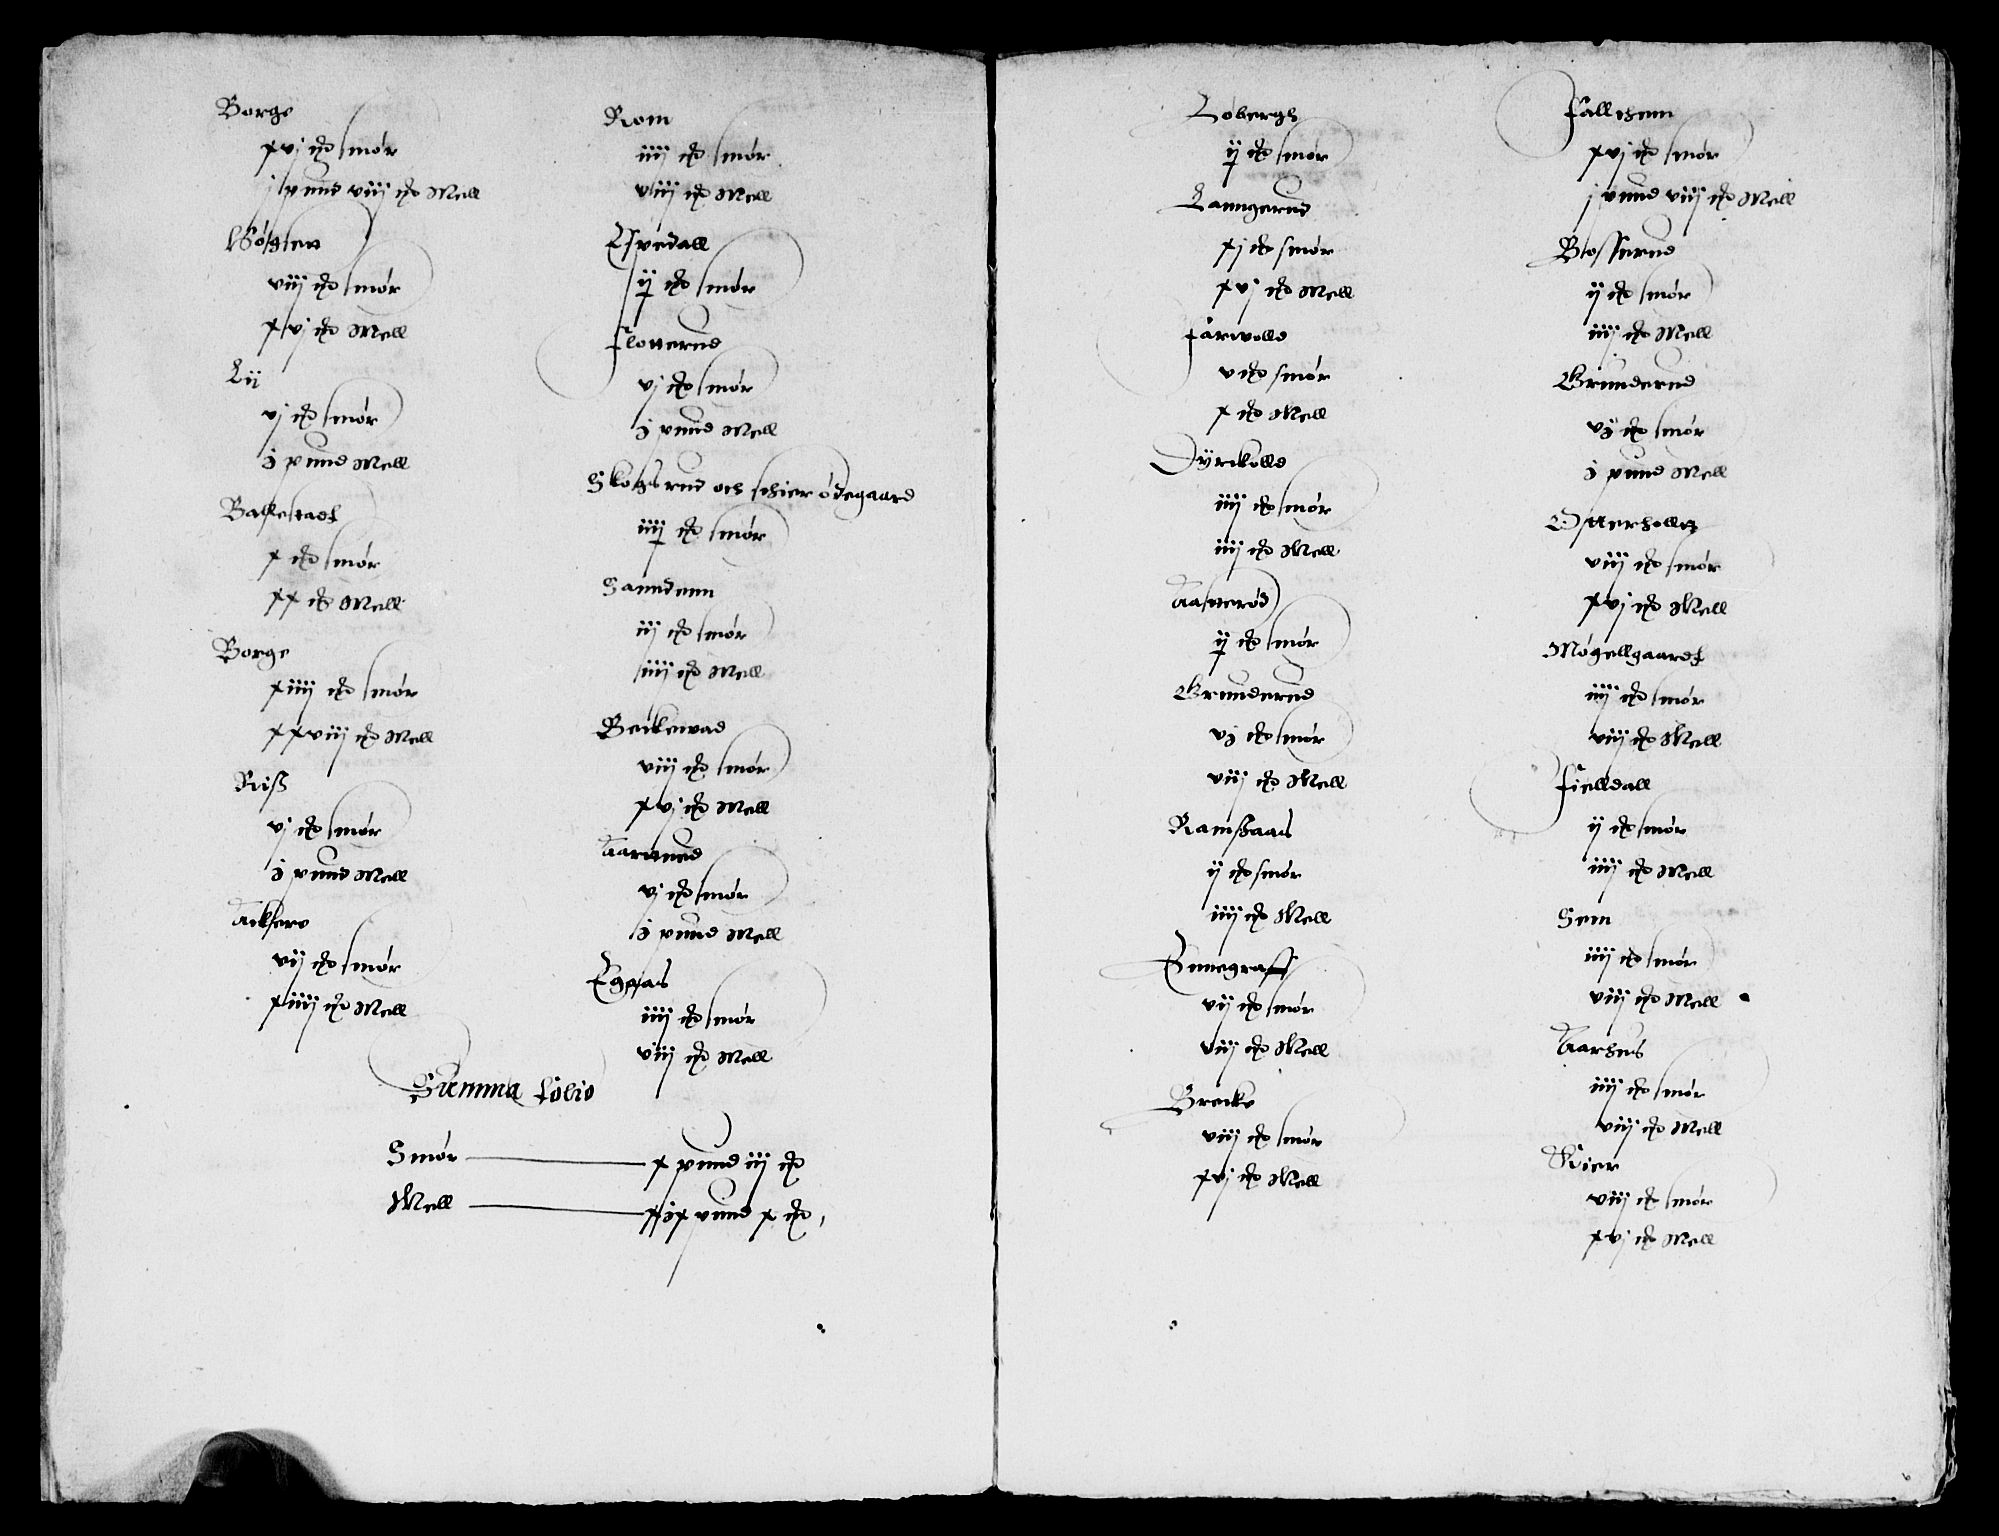 Borge
xvj ℔ smør
j pund viij ℔ Mell
viij ℔ smør
xvj ℔ Mell
Lij
vj ℔ smør
j pund Mell
Ballestadt
x ℔ smør
xx ℔ Mell
Borge
xiiij ℔ smør
xxviij ℔ Mell
Riiß
vj ℔ smør
j pund Mell
Acksere
vij ℔ smør
xiiij ℔ Mell
Rom
iiij ℔ smør
viij ℔ Mell
Espedall
ij ℔ smør
Flotterud
vj ℔ smør
j pund Mell
Skogsrud och thier ødegaard
iiij ℔ smør
Sanndenn
iij ℔ smør
iiij ℔ Mell
Beckevad
viij ℔ smør
xvj ℔ Mell
Aarnned
vj ℔ smør
j pund Mell
Egaas
iiij ℔ smør
viij ℔ Mell
Summa folio
Smør — x pund iij ℔
Mell — xix pund x ℔
Løbergh
ij ℔ smør
Lanngerud
xj ℔ smør
xvj ℔ Mell
Farvolld
v ℔ smør
x ℔ Mell
Dyrkolld
iiij ℔ smør
iiij ℔ Mell
Aasterød
ij ℔ smør
Grunderud
vj ℔ smør
viij ℔ Mell
Ramsaas
ij ℔ smør
iiij ℔ Mell
Ennegraff
vij ℔ smør
viij ℔ Mell
Brecke
viij ℔ smør
xvj ℔ Mell
Fallehem
xvj ℔ smør
j pund viij ℔ Mell
Bosserud
ij ℔ smør
iiij ℔ Mell
Grunderud
vj ℔ smør
j pund Mell
Otterholltt
viij ℔ smør
xvj ℔ Mell
Møgellgaardt
iiij ℔ smør
viij ℔ Mell
Fielldall
ij ℔ smør
iiij ℔ Mell
Sem
iiij ℔ smør
viij ℔ Mell
Aarhus
iiij ℔ smør
viij ℔ Mell
Kier
viij ℔ smør
xvj ℔ Mell